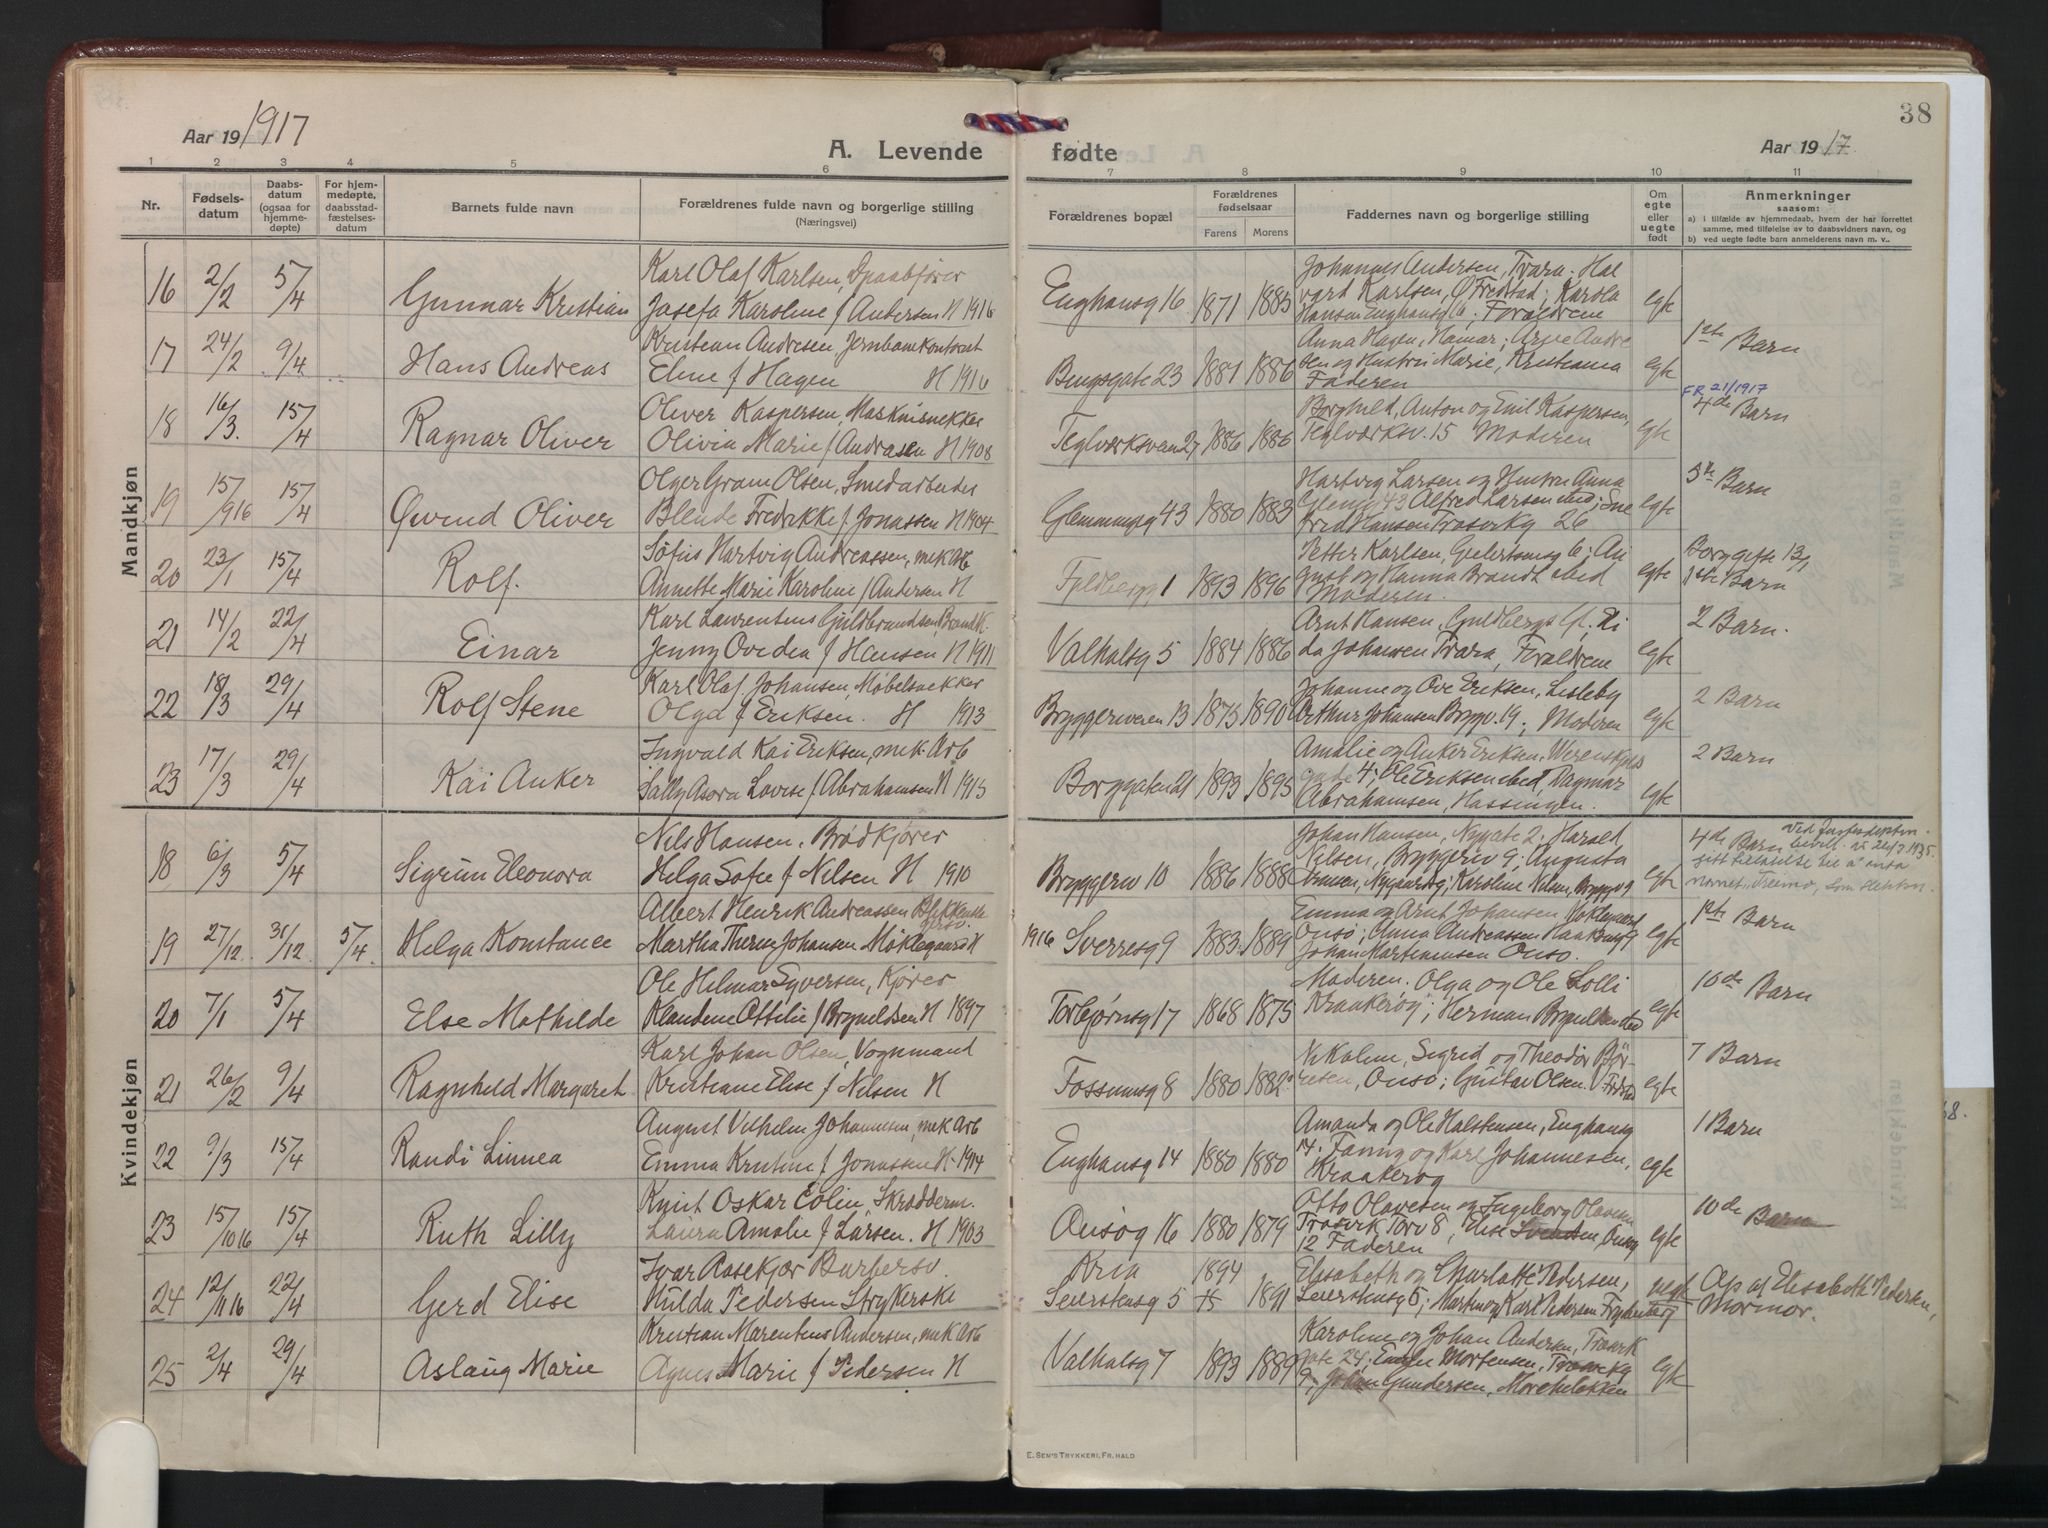 Aar 19 1917
A. Levende
1 2 3 4 5 6
Nr.
Fødsels-
datum
Daabs-
datum
(ogsaa for
hjemme-
døpte)
For hjem-
medøpte,
daabsstad-
fæstelses-
datum
Barnets fulde navn
Forældrenes fulde navn og borgerlige stilling
(Næringsvei)
Mandkjøn
16 2/2 5/4 Gunnar Kristian
Karl Olaf Karlsen,
Josefa Karoline f Andersen H 1916
17 24/2 9/4 Hans Andreas
Kristian Andresen, Jernbanekontorist
Eline f Hagen H 1916
18 16/3. 15/4 Ragnar Oliver
Oliver Kaspersen, Maskinsnekker
Olivia Marie f Andrasen H 1908
19 15/9 16 15/4 Øivind Oliver
Olger Gram Olsen, Smedarbeider
Blende Fredrikke f Jonassen H 1904
20 23/1 15/4 Rolf.
Sofus Hartvig Andreassen, mek Arb
Annette Marie Karoline f Andersen H
21 14/2 22/4 Einar
Karl Laurentius Guldbrandsen,
Jenny Ovidia f Hansen H 1911
22 18/3 29/4 Rolf Stene
Karl Olaf Johansen, Møbelsnekker
Olga f Eriksen. H 1913
23 17/3 29/4 Kai Anker
Ingvald Kai Eriksen, mek. Arb
Sally Asora Lovise f Abrahamsen H 1915
Kvindekjøn
18 6/3 5/4 Sigrun Eleonora
Nils Hansen, Brødkjører
Helga Sofie f Nilsen H 1910
19 27/12. 31/12. 5/4. Helga Konstance
Albert Henrik Andreassen
Martha Johansen Møklegaard H
20 7/1 5/4 Else Mathilde
Ole Hilmar Syversen, Kjører
Klaudine Ottilie f Brynildsen H 1897
21 26/2 9/4 Ragnhild Margaret
Karl Johan Olsen, Vognmand
Kristiane Elise f Nilsen H
22 9/3 15/4 Randi Linnea
August Vilhelm Johannesen, mek Arb
Emma Kristine f Jonassen H. 1914
23 15/10 16 15/4 Ruth Lilly
Knut Oskar Eolin, Skrædderm.
Laura Amalie f Larsen. H 1903
24 12/11 16 22/4 Gerd Elise
Ivar Aasekjær Barbersv.
Hulda Pedersen Strykerske
25 2/4 29/4 Aslaug Marie
Kristian Marentius Andersen, mek Arb
Agnes Marie f Pedersen H
38
fødte
Aar 19 17.
7 8 9 10 11
Forældrenes bopæl
Forældrenes
fødselsaar
Farens Morens
Faddernes navn og borgerlige stilling
Om
egte
eller
uegte
født
Anmerkninger
saasom:
a) i tilfælde av hjemmedaab, hvem der har forrettet
samme, med tilføielse av to daabsvidners navn, og
b) ved uegte fødte barn anmelderens navn m. v..
Enghausg 16 1871 1885
Johannes Andersen, Trara. Hal
vard Karlsen, Ø Fredstad; Karola
Hansen Enghausg 6; Forældrene
egte
Bingsgate 23 1881 1886
Anna Hagen, Hamar; Arne Andre
sen og Hustru Marie, Kristiania
Faderen
egte
1ste Barn
FR 21/1917
Teglværksveien 27 1886 1886
Borghild, Anton og Emil Kaspersen,
Teglværksv. 15 Moderen
egte
4de Barn
Glemmegg 43 1880 1883
Hartvig Larsen og Hustru Anna
Glemg 43 Alfred Larsen ibid;
Hansen Trosvikg 26
egte
5te Barn
Fjeldbergg 1 1893 1896
Petter Karlsen, 6; Au
gust og Hanna Brandt ibid
Moderen.
egte
1ste Barn
Valhalsg 5 1884 1886
Arnt Hansen,
da Johansen Trara, Forældrene
egte
2 Barn.
Bryggeriveien 13 1875 1890
Johanne og Ove Eriksen, Lisleby
Arthur Johansen Bryggv. 19; Moderen
egte
2 Barn
Borggaten 21 1893 1895
Amalie og Anker Eriksen, Werenskjolds
gade 4; Ole Eriksen ibid, Dagmar
Abrahamsen, Hassingen.
egte
2 Barn
Bryggeriv 10 1886 1888
Johan Hansen, Nygate 2. Harald
Nilsen, Bryggeriv 9; Augusta
Nygaardsg; Karoline Nilsen, Bryggv 9
egte
4de Barn
Ved Justisdepten
bevill. av 26/7 1935
gitt tillatelse til å anta
navnet "Treimo" som slektsn.
1916 Sverresg 9 1883. 1889
Emma og Arnt Johansen
Onsø; Anna Andreassen Haakonsg 9
Johan Martiniussen Onsø.
egte
1ste Barn
Torbjørnsg 17 1868 1875
Moderen. Olga og Ole Lolli
Kraakerøy; Herman Brynildsen ibid
egte
10de Barn
Fossumsg 8 1880 1882
Nikoline, Sigrid og Theodor Bjør-
Onsø; Gustav Olsen.
egte
7 Barn
Enghausg 14 1880 1880
Amanda og Ole Halstensen, Enghausg
14. Fanny og Karl Johannesen,
Kraakerøy
egte
1 Barn
Onsøg 16 1880 1879
Otto Olavesen og Ingeborg Olavesen
Trosvik Torv 8, Else Onsøg
12 Faderen
egte
10de Barn
Kria 1894
Seierstensg 5 1891
Elisabeth og Charlotte Pedersen,
Seierstensg 5; Martin og Karl Pedersen
uegte
Op af Elisabeth Pedersen,
Mormor.
Valhalsg 7 1893 1889
Karoline og Johan Andersen,
gate 24; Mortensen,
9; Johan Gundersen,
egte
E. SEM'S TRYKKERI, FR. HALD